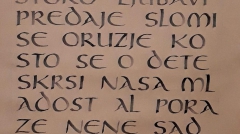 STOKO LJUBAVI
PREDAJE SLOMI
SE ORUZJE KO
STO SE O DETE
SKRSI NASA ML
ADOST AL PORA
ZE NENE SAD